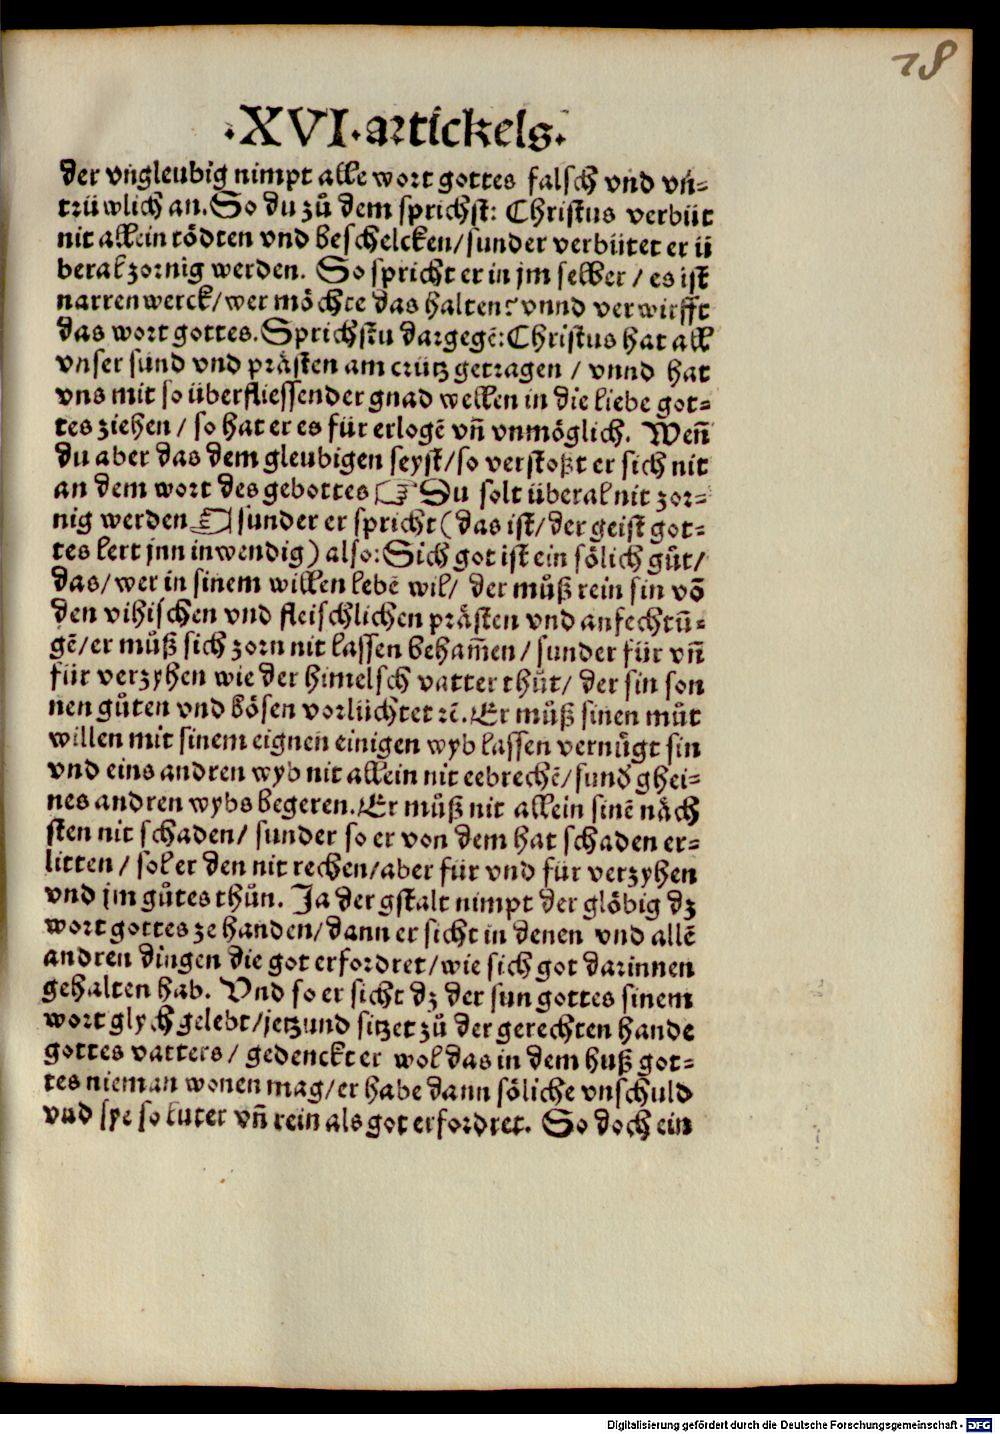 78
·XVI·artickels·
der vngleubig nimpt alle wort gottes falsch vnd vn-
trüwlich an. So du zů dem sprichst: Christus verbüt
nit allein tödten vnd beschelcken/sunder verbütet er ü
beral zornig werden. So spricht er in jm selber / es ist
narrenwerck/wer möchte das halten? vnnd verwirfft
das wort gottes. Sprichstu dargegē: Christus hat all
vnser sünd vnd prästen am crütz getragen / vnnd hat
vns mit so überfliessender gnad wellen in die liebe got-
tes ziehen / so hat er es für erlogē vñ vnmöglich. Weñ
du aber das dem gleubigen seyst/so verstoßt er sich nit
an dem wort des gebottes ☞ Du solt überal nit zor-
nig werden ☜ sunder er spricht (das ist/der geist got-
tes lert jnn inwendig) also: Sich got ist ein sölich gůt/
das/wer in sinem willen lebē wil/ der můß rein sin vō
den vihischen vnd fleischlichen prästen vnd anfechtū-
gē/er můß sich zorn nit lassen beham̄en / sunder für vñ
für verzyhen wie der himelsch vatter thůt/ der sin son
nen gůten vnd bösen vorlüchtet ꝛc̄. Er můß sinen můt
willen mit sinem eignen einigen wyb lassen vernůgt sin
vnd eins andren wyb nit allein nit eebrechē/sund̕ ghei-
nes andren wybs begeren. Er můß nit allein sinē näch
sten nit schaden/ sunder so er von dem hat schaden er-
litten / sol er den nit rechen/aber für vnd für verzyhen
vnd jm gůtes thůn. Ja der gstalt nimpt der glöbig dz
wort gottes ze handen/dann er sicht in denen vnd allē
andren dingen die got erfordret/wie sich got darinnen
gehalten hab. Vnd so er sicht dz der sun gottes sinem
wort glych gelebt/jetzund sitzet zů der gerechten hande
gottes vatters / gedenckt er wol das in dem huß got-
tes nieman wonen mag/er habe dann söliche vnschuld
vnd sye so luter vñ rein als got erfordret. So doch ein
Digitalisierung gefördert durch die Deutsche Forschungsgemeinschaft - DFG